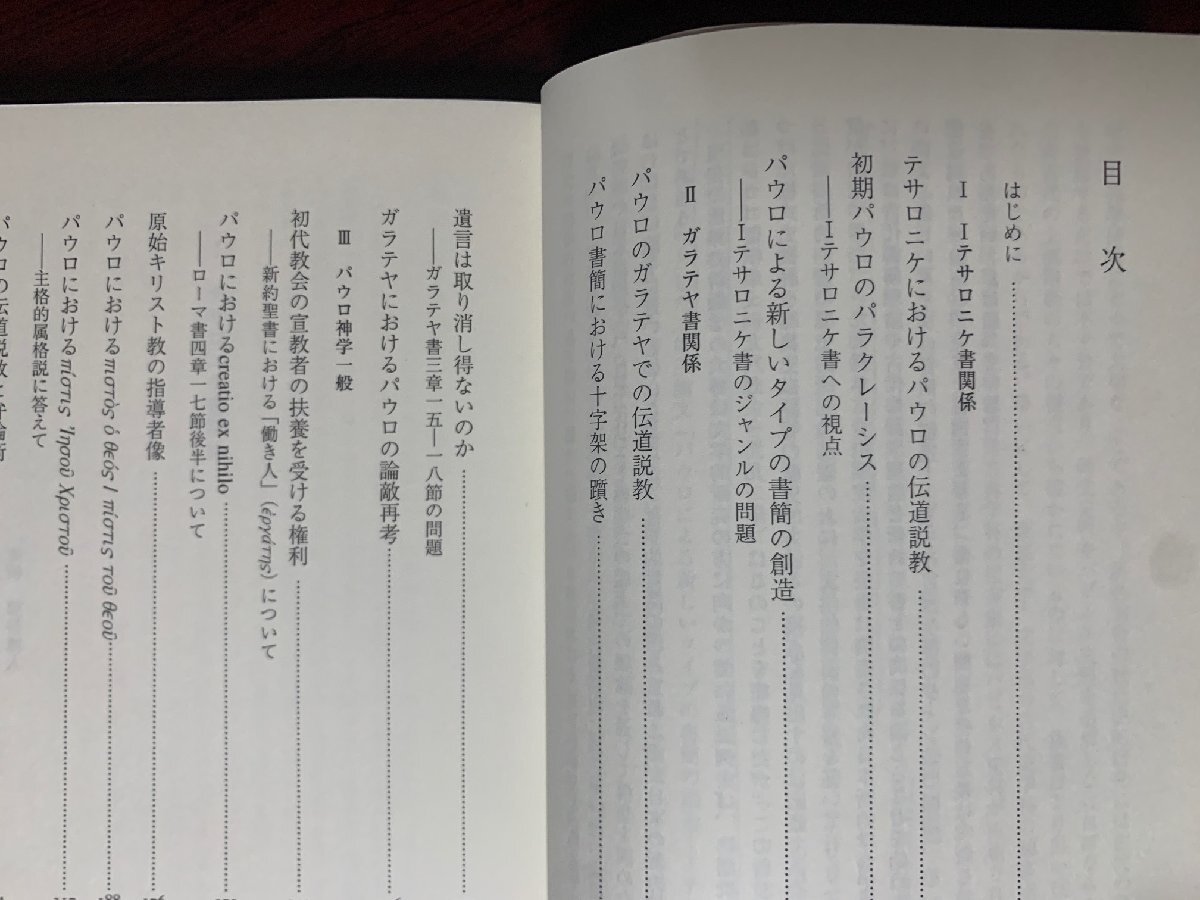 目次
はじめに
I Iテサロニケ書関係
テサロニケにおけるパウロの伝道説教
初期パウロのパラクレーシス
――Iテサロニケ書への視点
パウロによる新しいタイプの書簡の創造
――Iテサロニケ書のジャンルの問題
II ガラテヤ書関係
パウロのガラテヤでの伝道説教
パウロ書簡における十字架の躓き
遺言は取り消し得ないのか
――ガラテヤ書三章一五―一八節の問題
ガラテヤにおけるパウロの論敵再考
III パウロ神学一般
初代教会の宣教者の扶養を受ける権利
――新約聖書における「働き人」(ἐργάτης)について
パウロにおけるcreatio ex nihilo
――ローマ書四章一七節後半について
原始キリスト教の指導者像
パウロにおけるπιστὸς ὁ θεός / πίστις τοῦ θεοῦ
パウロにおけるπίστις Ἰησοῦ Χριστοῦ
――主格的属格説に答えて
パウロの伝道説教と弁論術